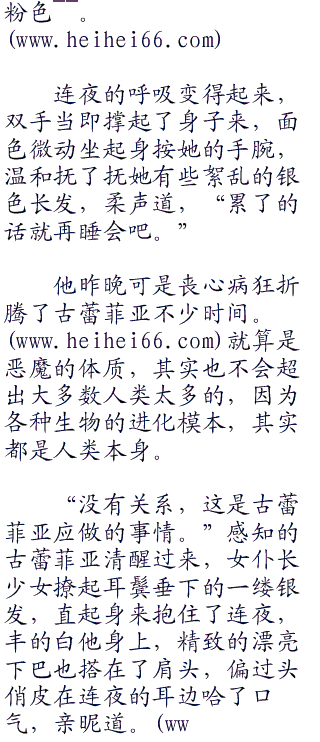 粉色 。
(www.heihei66.com)
连夜的呼吸变得起来，
双手当即撑起了身子来，面
色微动坐起身按她的手腕，
温和抚了抚她有些絮乱的银
色长发，柔声道，“累了的
话就再睡会吧。”
他昨晚可是丧心病狂折
腾了古蕾菲亚不少时间。
(www.heihei66.com)就算是
恶魔的体质，其实也不会超
出大多数人类太多的，因为
各种生物的进化模本，其实
都是人类本身。
“没有关系，这是古蕾
菲亚应做的事情。”感知的
古蕾菲亚清醒过来，女仆长
少女撩起耳鬓垂下的一缕银
发，直起身来抱住了连夜，
丰的白他身上，精致的漂亮
下巴也搭在了肩头，偏过头
俏皮在连夜的耳边哈了口
气，亲昵道。(ww